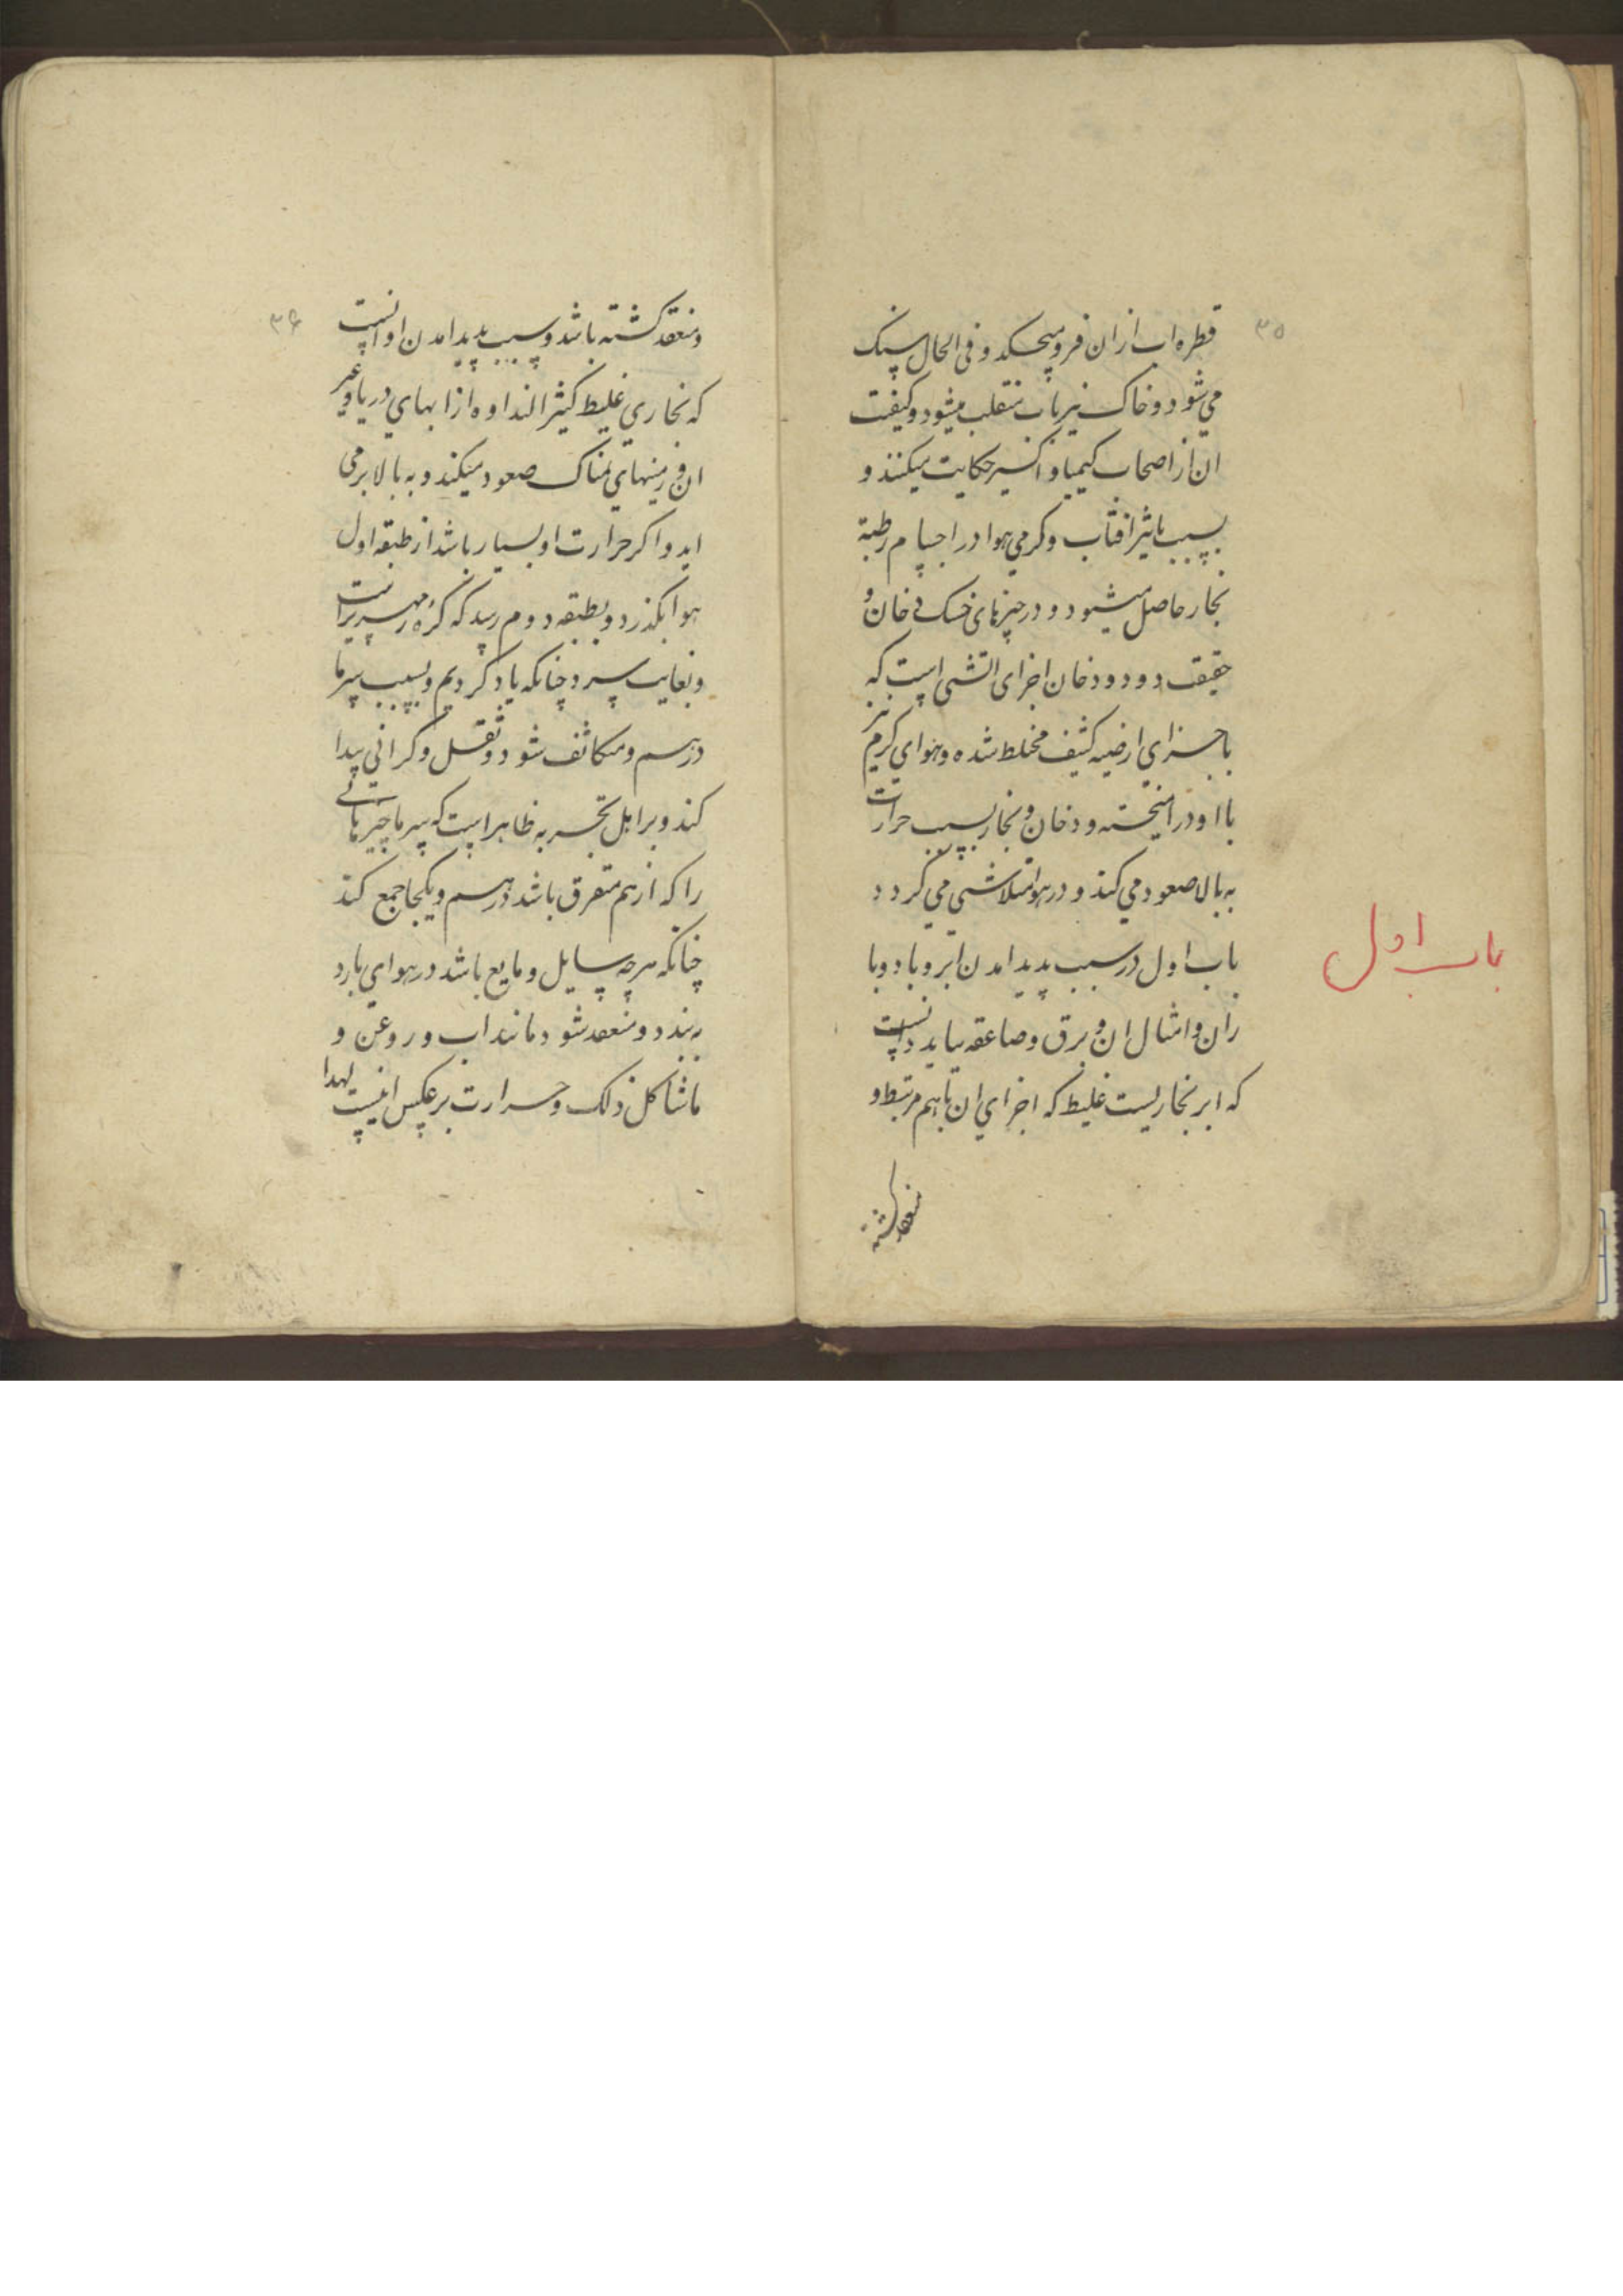 ۳۵
قطره اب ازان فرو میچکد و فی الحال سنک
می شود و خاک نیز باب منقلب میشود و کیفیت
ان از اصحاب کیمیا و اکسیر حکایت میکنند و
بسبب تاثیر افتاب و کرمی هوا در اجسام رطبة
بخار حاصل میشود و در چیزهای خشک دخان و
حقیقت دود و دخان اجزای اتشی است که
باجزای ارضیه کثیف مختلط شده و هوای کرم نیز
با او در امیخته و دخان و بخار بسبب حرارت
به بالا صعود می کند و در هوا متلاشی می کردد
باب اول در سبب پدید امدن ابر و باد و با
ران و امثال ان و برق و صاعقه بباید دانست
که ابر بخاریست غلیظ که اجزای ان باهم مرتبط و
منعقد کشته
باب اول
۳۶
و منعقد کشته باشد و سبب پدید امدن او انست
که بخاری غلیظ کثیر النداوه از ابهای دریا و غیر
ان و زمینهای نمناک صعود میکند و به بالا بر می
اید و اکر حرارت او بسیار باشد از طبقه اول
هوا بکذرد و بطبقه دوم رسد که کره زمهریراست
و بغایت سرد چنانکه یاد کردیم و بسبب سرما
درهم و متکاثف شود و ثقل و کرانی پیدا
کند و بر اهل تجربه ظاهر است که سرما چیزهائی
را که ازهم متفرق باشد درهم و یکجا جمع کند
چنانکه هرچه سایل و مایع باشد در هوای بارد
به بندد و منعقد شود مانند اب و روغن و
ماشاکل ذلک و حرارت برعکس اینست لهذا